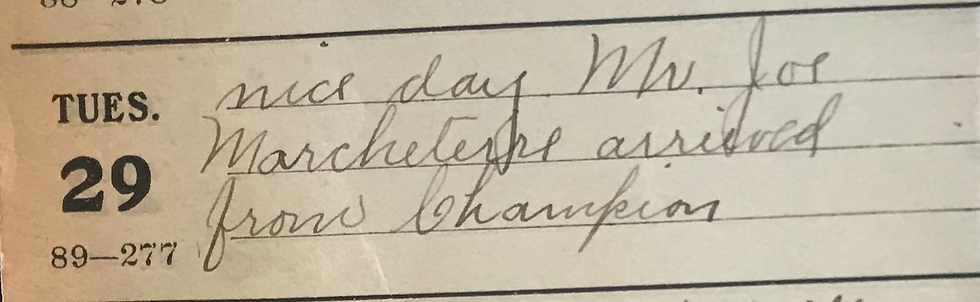 nice day. Mr. Joe
TUES.
Marcheterre arrived
29
from Champion
89—277